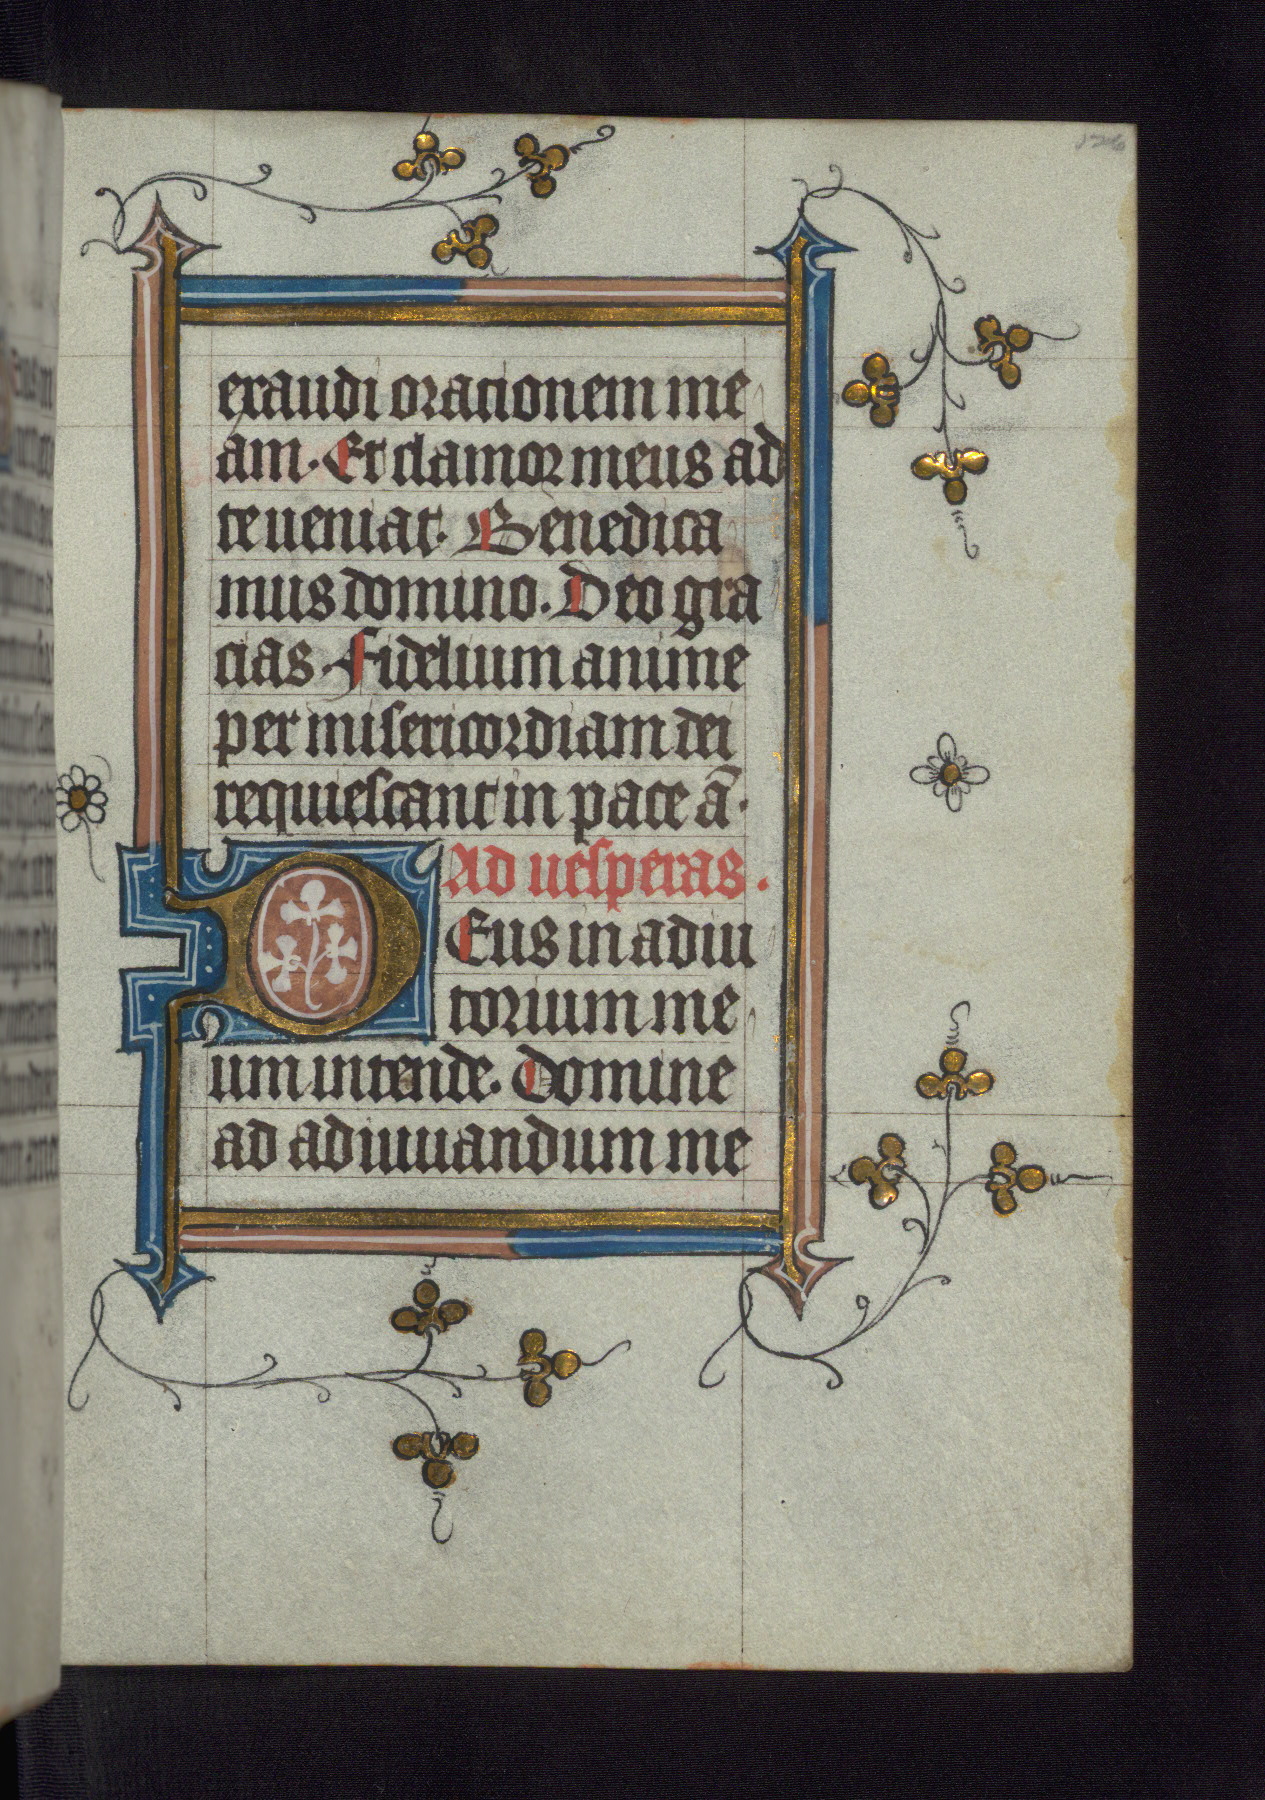 126
exaudi orationem me
am. Et clamor meus ad
te ueniat. Benedica
mus domino. Deo gra
cias. Fidelium anime
per misericordiam dei
requiescant in pace a̅.
Ad uesperas.
DEus in adiu
torium me
um intende. Domine
ad adiuuandum me